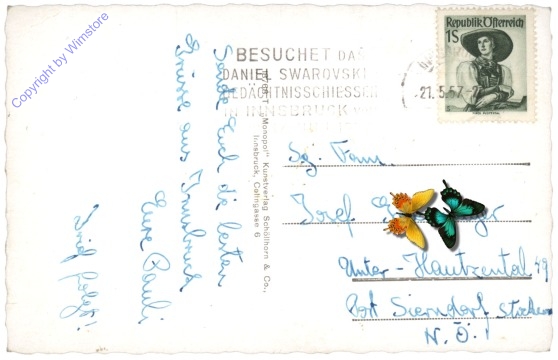 Copyright by Wimstore
Sende Euch die besten
Grüsse aus Innsbruck
Eure Pauli
Brief folgt!
"Monopol" Kunstverlag Schöllhorn & Co.,
Innsbruck, Colingasse 6
BESUCHET DAS
DANIEL SWAROVSKI
GEDÄCHTNISSCHIESSEN
IN INNSBRUCK
21.5.57
Republik Österreich
1S
Sg. Fam.
Josef
Unter-Hautzental 49
Post Sierndorf
N.Ö.!